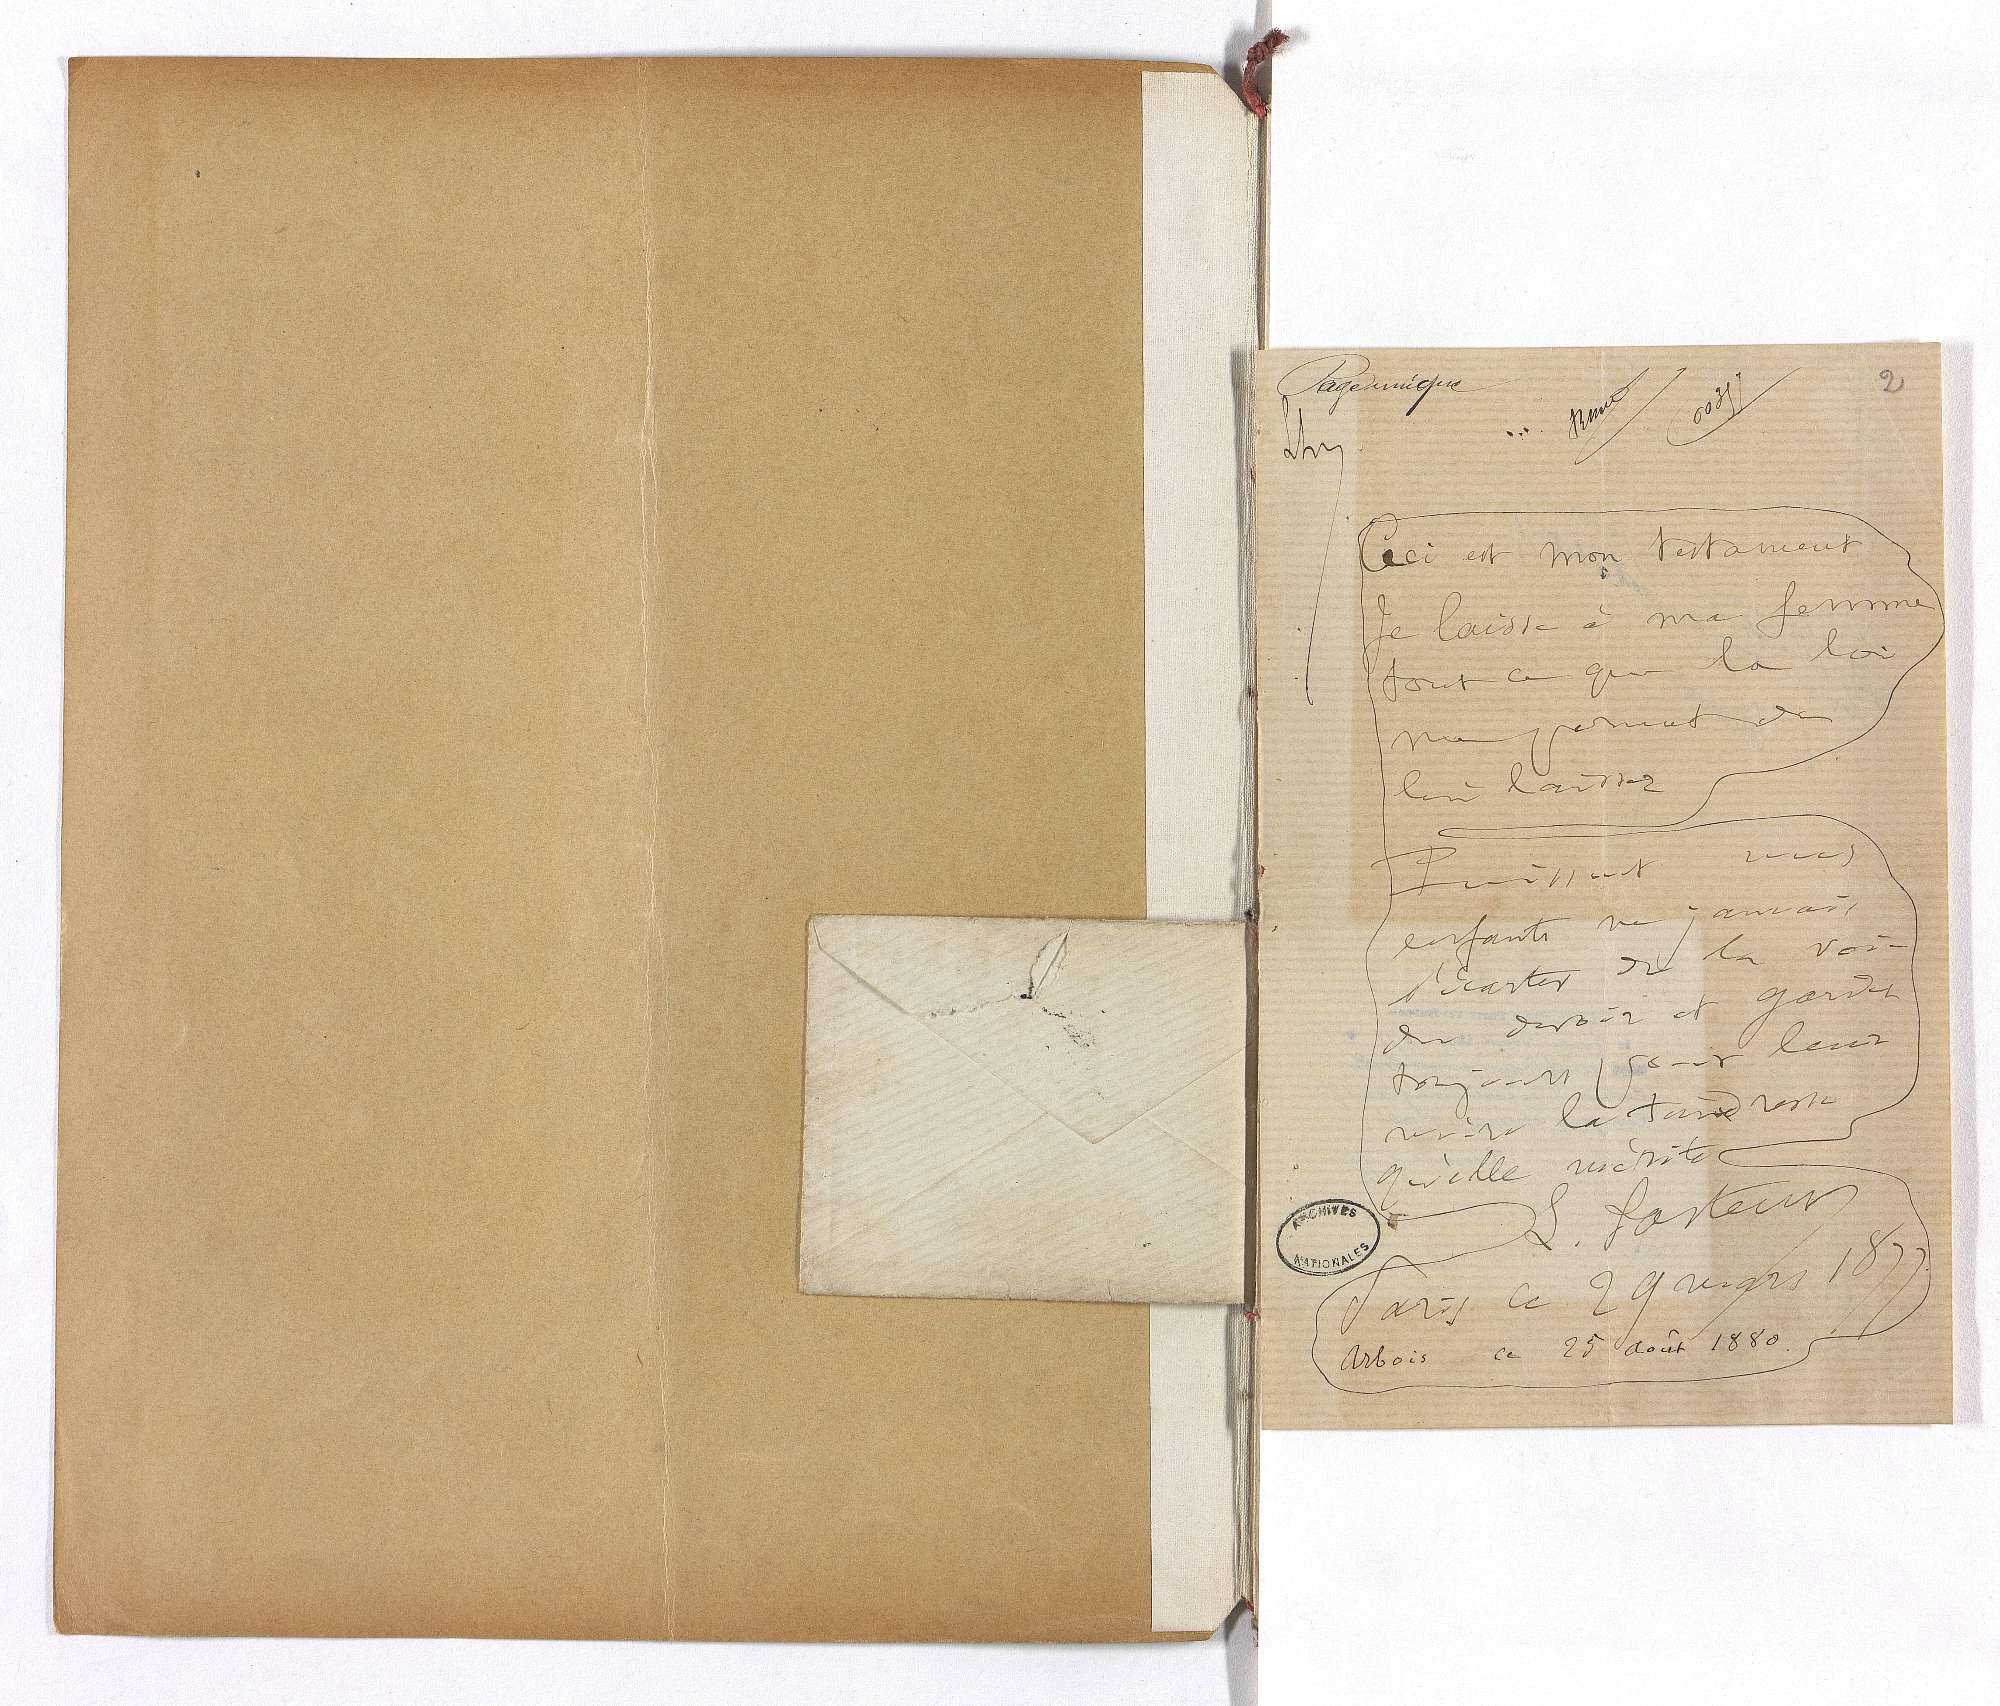 Page unique
2
Ceci est mon testament
Je laisse à ma femme
tout ce que la loi
me permet de
lui laisser
Puissent mes
enfants ne jamais
s'écarter de la voie
du devoir et garder
toujours pour leur
mère la tendresse
qu'elle mérite
L. Pasteur
ARCHIVES
NATIONALES
Paris ce 29 mars 1877.
Arbois ce 25 août 1880.